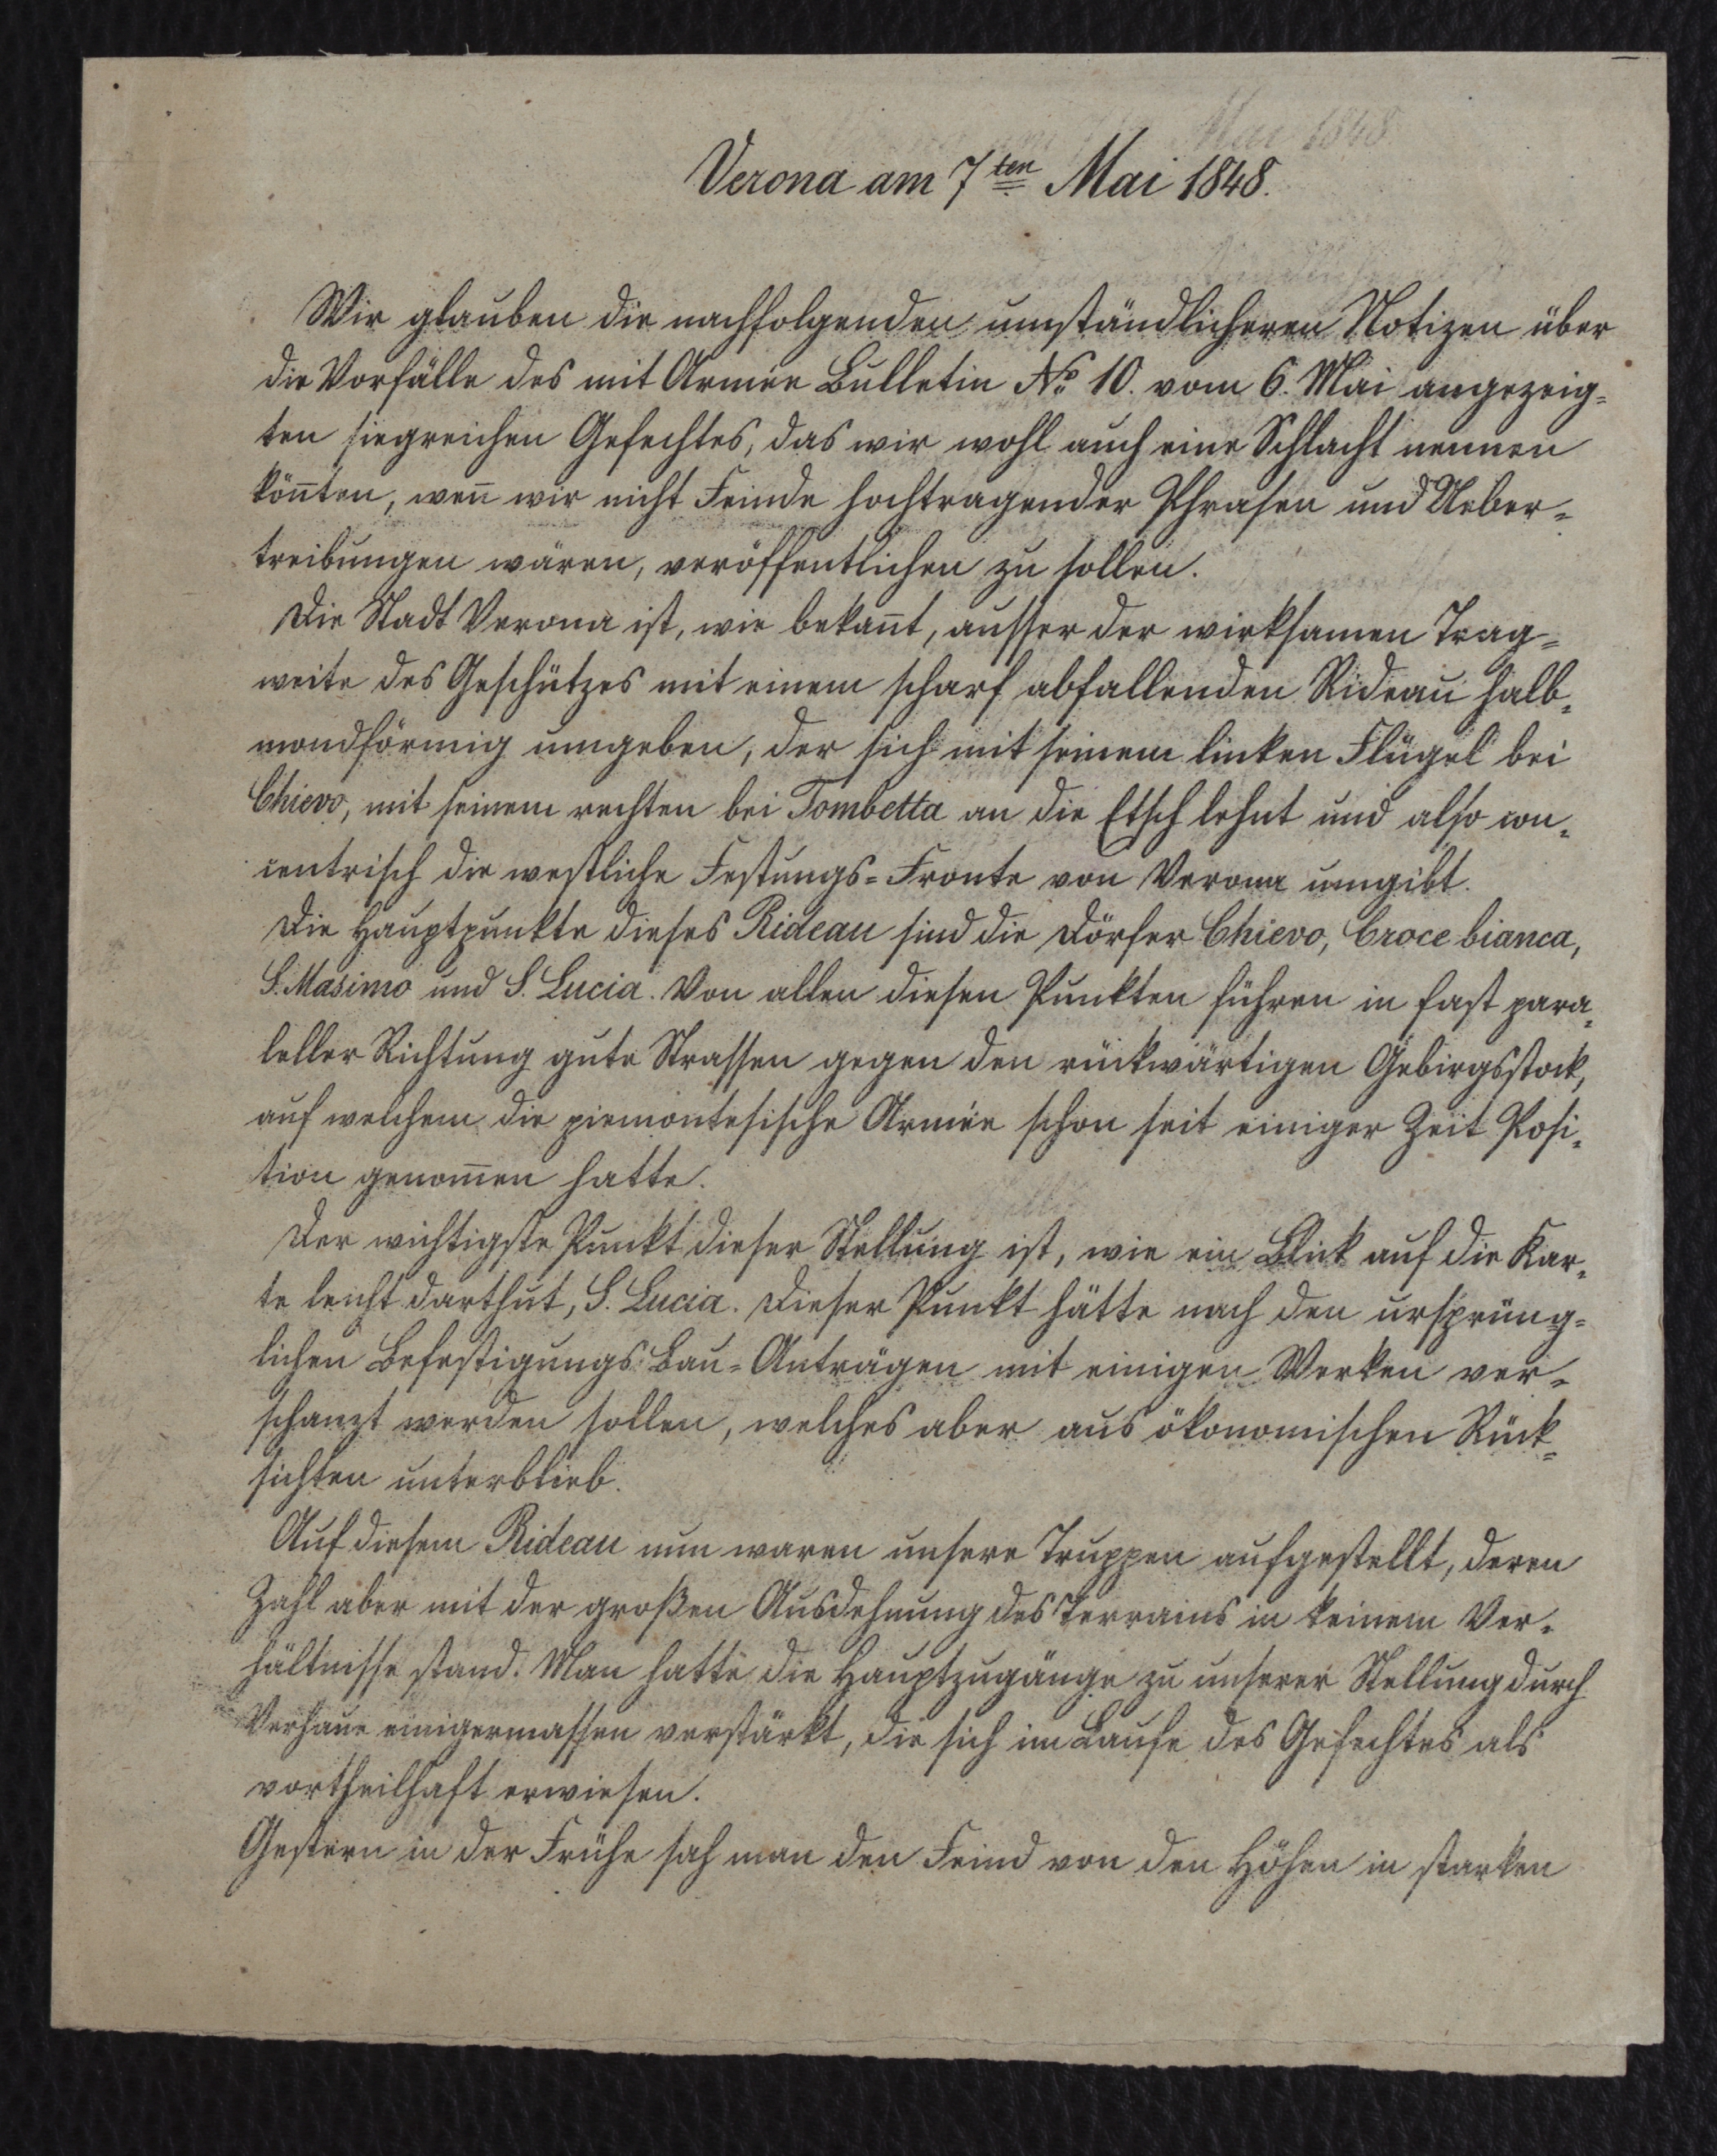 Verona am 7ten Mai 1848.
Wir glauben die nachfolgenden umständlicheren Notizen über
die Vorfälle des mit Armée Bulletin No 10. vom 6. Mai angezeig=
ten siegreichen Gefechtes, das wir wohl auch eine Schlacht nennen
kön̄ten, wen̄ wir nicht Feinde hochtragender Phrasen und Ueber=
treibungen wären, veröffentlichen zu sollen.
Die Stadt Verona ist, wie bekan̄t, ausser der wirksamen Trag=
weite des Geschützes mit einem scharf abfallenden Rideau halb=
mondförmig umgeben, der sich mit seinem linken Flügel bei
Chievo, mit seinem rechten bei Tombetta an die Etsch lehnt und also con=
centrisch die westliche Festungs=Fronte von Verona umgibt.
Die Hauptpunkte dieses Rideau sind die Dörfer Chievo, Croce bianca,
S. Masimo und S. Lucia. Von allen diesen Punkten führen in fast para=
leller Richtung gute Strassen gegen den rückwärtigen Gebirgsstock,
auf welchem die piemontesische Armée schon seit einiger Zeit Posi=
tion genom̄en hatte.
Der wichtigste Punkt dieser Stellung ist, wie ein Blick auf die Kar=
te leicht darthut, S. Lucia. Dieser Punkt hätte nach den ursprüng=
lichen Befestigungs Bau=Anträgen mit einigen Werken ver=
schanzt werden sollen, welches aber aus ökonomischen Rück=
sichten unterblieb.
Auf diesem Rideau nun waren unsere Truppen aufgestellt, deren
Zahl aber mit der großen Ausdehnung des Terrains in keinem Ver=
hältnisse stand. Man hatte die Hauptzugänge zu unserer Stellung durch
Verhaue einigermassen verstärkt, die sich im Laufe des Gefechtes als
vortheilhaft erwiesen.
Gestern in der Frühe sah man den Feind von den Höhen in starken